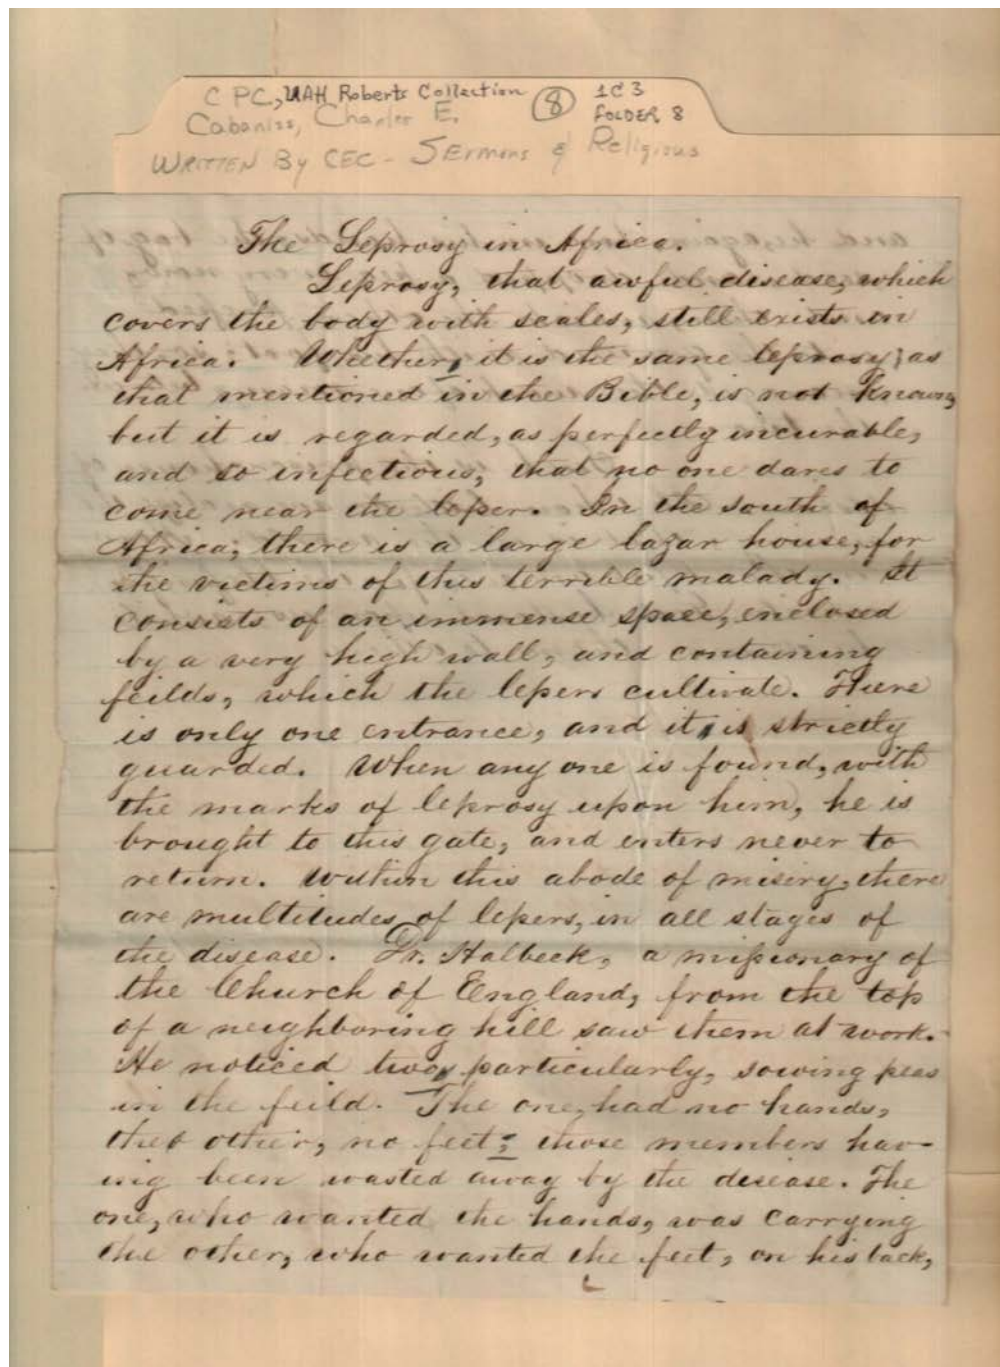 C PC, UAH Roberts Collection (8) 1C3
Cabaniss, Charles E. FOLDER 8
WRITTEN By CEC - SErmons & Religious
The Leprosy in Africa.
Leprosy, that awful disease, which
covers the body with scales, still exists in
Africa. Whether, it is the same leprosy, as
that mentioned in the Bible, is not known,
but it is regarded, as perfectly incurable,
and so infectious, that no one dares to
come near the leper. In the south of
Africa, there is a large lazar house, for
the victims of this terrible malady. It
consists of an immense space, enclosed
by a very high wall, and containing
feilds, which the lepers cultivate. There
is only one entrance, and it, is strictly
guarded. When any one is found, with
the marks of leprosy upon him, he is
brought to this gate, and enters never to
return. Within this abode of misery, there
are multitudes, of lepers, in all stages of
the disease. Dr. Halbeck, a missionary of
the Church of England, from the top
of a neighboring hill saw them at work.
He noticed two, particularly, sowing peas
in the feild. The one, had no hands,
the other, no feet; those members hav-
ing been wasted away by the disease. The
one, who wanted the hands, was carrying
the other, who wanted the feet, on his back,